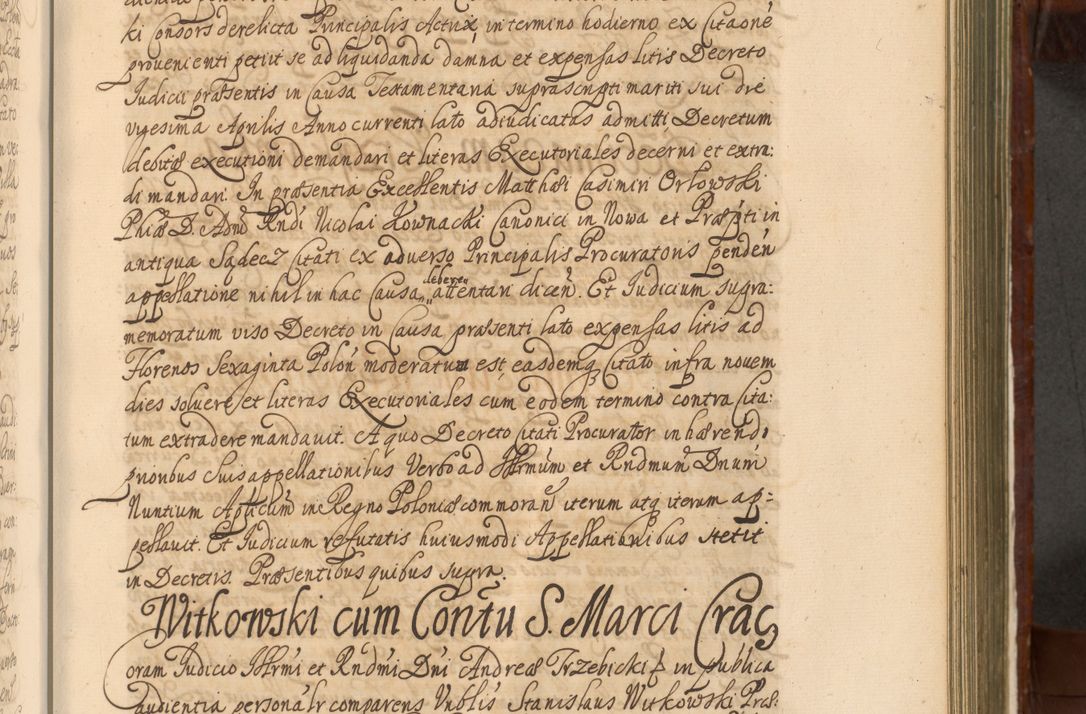 ki Consors derelicta Principalis Actrix, in termino hodierno, ex Citaone
provenienti petiit se ad liquidanda damna et expensas litis Decreto
Iudicii præsentis in Causa Testamentaria suprascripti mariti sui die
vigesima Aprilis Anno currenti lato adiudicatas admitti, Decretum
debitæ executioni demandari et literas Executoriales decerni et extra:
di mandari. In præsentia Excellentis Matthæi Casimiri Orłowski
Phiæ D. Adm Rndi Nicolai Kownacki Canonici in Nowa et Præpti in
antiqua Sądecz Citati ex adverso Principalis Procuratoris penden
appellatione nihil in hac Causa „libere„ attentari dicen. Et Iudicium supra:
memoratum viso Decreto in Causa præsenti lato expensas litis ad
Florenos Sexaginta Polon moderatum est, easdemq Citato infra novem
dies solvere, et literas Executoriales cum eodem termino contra Cita:
tum extradere mandavit. A quo Decreto Citati Procurator inhærendo
prioribus suis appellationibus Verbo ad Illrmum et Rndmum Dnum
Nuntium Apticum in Regno Poloniæ commoran iterum atq iterum ap=
pellavit. Et Iudicium refutatis huiusmodi Appellationibus stetit
in Decretis. Præsentibus quibus supra.
Witkowski cum Contu S. Marci Crac
Coram Iudicio Illrmi et Rndmi Dni Andreæ Trzebicki in publica
Audientia personalr comparens Vnblis Stanislaus Witkowski Præ: